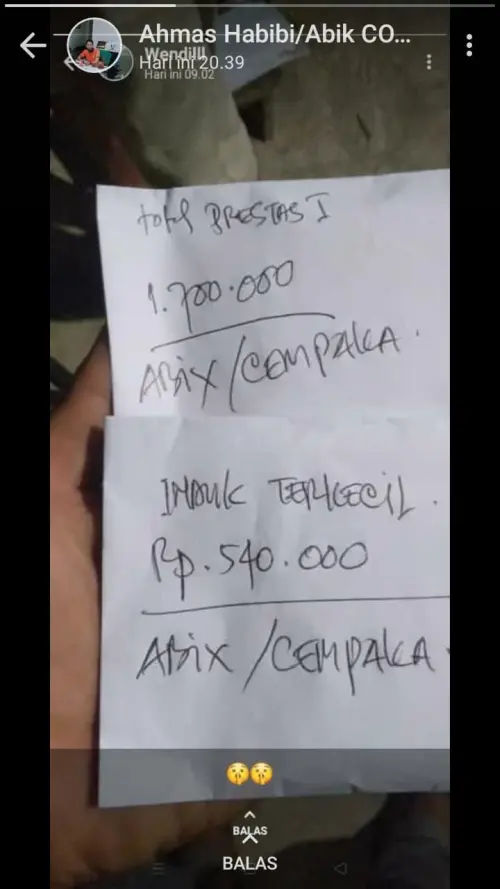 Ahmas Habibi/Abik CO...
Hari ini 20.39
Wendilll
Hari ini 09.02
total PRESTASI
1.700.000
ABIX/CEMPAKA.
INDUK TERKECIL.
Rp.540.000
ABIX/CEMPAKA.
BALAS
BALAS